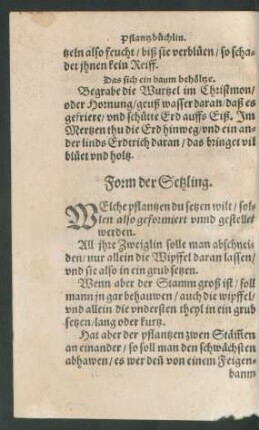 Pflantzbüchlin.
tzeln also feucht / biß sie verblüen / so scha-
det jhnen kein Reiff.
Das sich ein baum behöltze.
Begrabe die Wurtzel im Christmon /
oder Hornung / geuß wasser daran / daß es
gefriere / vnd schütte Erd auffs Eiß. Im
Mertzen thu die Erd hinweg / vnd ein an-
der linds Erdtrich daran / das bringet vil
blüet vnd holtz.
Form der Setzling.
WElche pflantzen du setzen wilt / sol-
len also geformiert vnnd gestellet
werden.
All jhre Zweiglin solle man abschnei-
den / nur allein die Wipffel daran lassen /
vnd sie also in ein grub setzen.
Wenn aber der Stamm groß ist / soll
mann jn gar behauwen / auch die wipffel /
vnd allein die vndersten theyl in ein grub
setzen / lang oder kurtz.
Hat aber der pflantzen zwen Stäm̃en
an einander / so soll man den schwächsten
abhawen / es wer deñ von einem Feigen-
baum